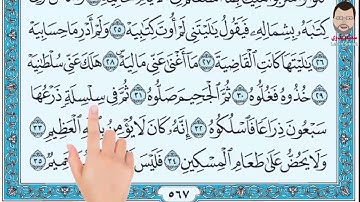 كِتَٰبَهُۥ بِشِمَالِهِۦ فَيَقُولُ يَٰلَيْتَنِى لَمْ أُوتَ كِتَٰبِيَهْ ٢٥ وَلَمْ أَدْرِ مَا حِسَابِيَهْ
٢٦ يَٰلَيْتَهَا كَانَتِ ٱلْقَاضِيَةَ ٢٧ مَآ أَغْنَىٰ عَنِّى مَالِيَهْ ٢٨ هَلَكَ عَنِّى سُلْطَٰنِيَهْ
٢٩ خُذُوهُ فَغُلُّوهُ ٣٠ ثُمَّ ٱلْجَحِيمَ صَلُّوهُ ٣١ ثُمَّ فِى سِلْسِلَةٍ ذَرْعُهَا
سَبْعُونَ ذِرَاعًا فَٱسْلُكُوهُ ٣٢ إِنَّهُۥ كَانَ لَا يُؤْمِنُ بِٱللَّهِ ٱلْعَظِيمِ ٣٣
وَلَا يَحُضُّ عَلَىٰ طَعَامِ ٱلْمِسْكِينِ ٣٤ فَلَيْسَ حَمِيمٌ ٣٥
٥٦٧